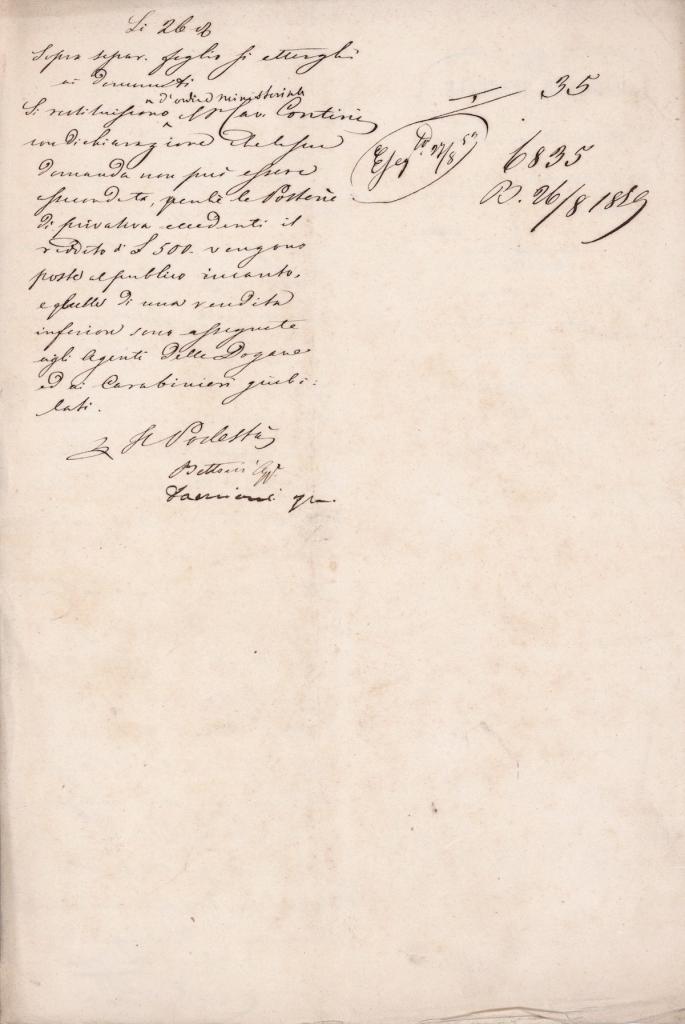 Li 26 d.o
Sopra separ. foglio si atterghi
ai documenti
d'ordine ministeriale
Si restituiscono al Sr Cav. Contini
con dichiarazione che la sua
domanda non può essere
assecondata, perché le Posterie
di privativa eccedenti il
reddito di £ 500. vengono
poste al pubblico incanto,
e quelle di una rendita
inferiore sono assegnate
agli Agenti delle Dogane
ed ai Carabinieri giubi:
lati.
Il Podestà
35
Eseg.to 27/8 59
6835
B. 26/8 1859